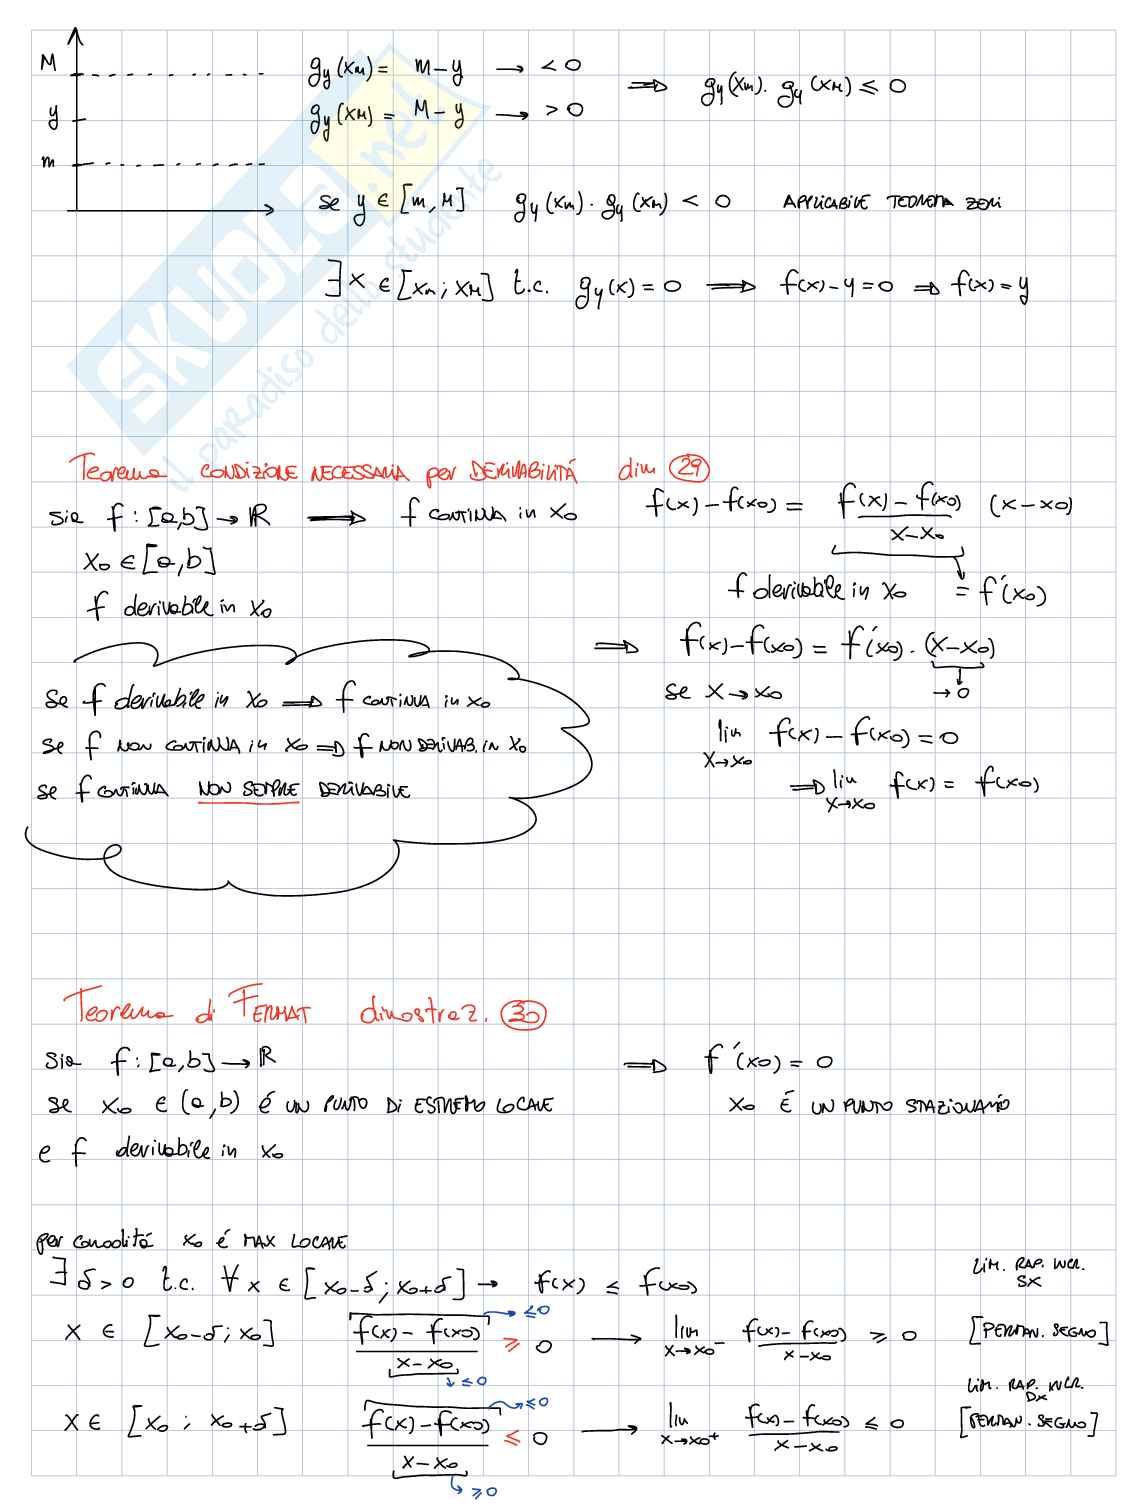 M
y
m
g_y(x_m) = m - y → < 0
g_y(x_M) = M - y → > 0
⇒ g_y(x_m) · g_y(x_M) ≤ 0
se y ∈ [m, M] g_y(x_m) · g_y(x_M) < 0 APPLICABILE TEOREMA ZERI
∃ x ∈ [x_m ; x_M] t.c. g_y(x) = 0 ⇒ f(x) - y = 0 ⇒ f(x) = y
SKUOLA.net
il paradiso dello studente
Teorema CONDIZIONE NECESSARIA per DERIVABILITÁ dim 29
sia f : [a,b] → ℝ ⇒ f CONTINUA in x₀
x₀ ∈ [a,b]
f derivabile in x₀
f(x) - f(x₀) = (f(x) - f(x₀))/(x - x₀) (x - x₀)
f derivabile in x₀ = f'(x₀)
⇒ f(x) - f(x₀) = f'(x₀) · (x - x₀)
se x → x₀ → 0
lim x→x₀ f(x) - f(x₀) = 0
⇒ lim x→x₀ f(x) = f(x₀)
se f derivabile in x₀ ⇒ f CONTINUA in x₀
se f NON CONTINUA in x₀ ⇒ f NON DERIVAB. IN x₀
se f CONTINUA NON SEMPRE DERIVABILE
Teorema di FERMAT dimostraz. 30
sia f : [a,b] → ℝ ⇒ f'(x₀) = 0
se x₀ ∈ (a,b) é UN PUNTO DI ESTREMO LOCALE x₀ É UN PUNTO STAZIONARIO
e f derivabile in x₀
per comodità x₀ é MAX LOCALE
∃ δ > 0 t.c. ∀ x ∈ [x₀-δ ; x₀+δ] → f(x) ≤ f(x₀)
LIM. RAP. INCR.
SX
x ∈ [x₀-δ ; x₀] (f(x) - f(x₀))/(x - x₀) ≥ 0 → lim x→x₀⁻ (f(x) - f(x₀))/(x - x₀) ≥ 0 [PERMAN. SEGNO]
→ ≤ 0
↓ ≤ 0
LIM. RAP. INCR.
DX
x ∈ [x₀ ; x₀+δ] (f(x) - f(x₀))/(x - x₀) ≤ 0 → lim x→x₀⁺ (f(x) - f(x₀))/(x - x₀) ≤ 0 [PERMAN. SEGNO]
→ ≤ 0
↳ ≥ 0